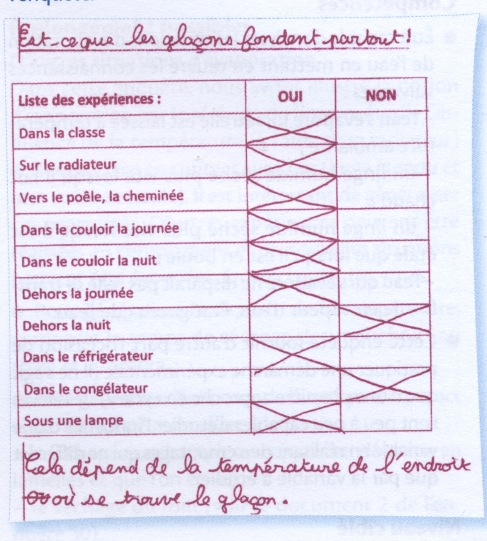 Est-ce que les glaçons fondent partout!
Liste des expériences : OUI NON
Dans la classe
Sur le radiateur
Vers le poêle, la cheminée
Dans le couloir la journée
Dans le couloir la nuit
Dehors la journée
Dehors la nuit
Dans le réfrigérateur
Dans le congélateur
Sous une lampe
Cela dépend de la température de l'endroit
où se trouve le glaçon.